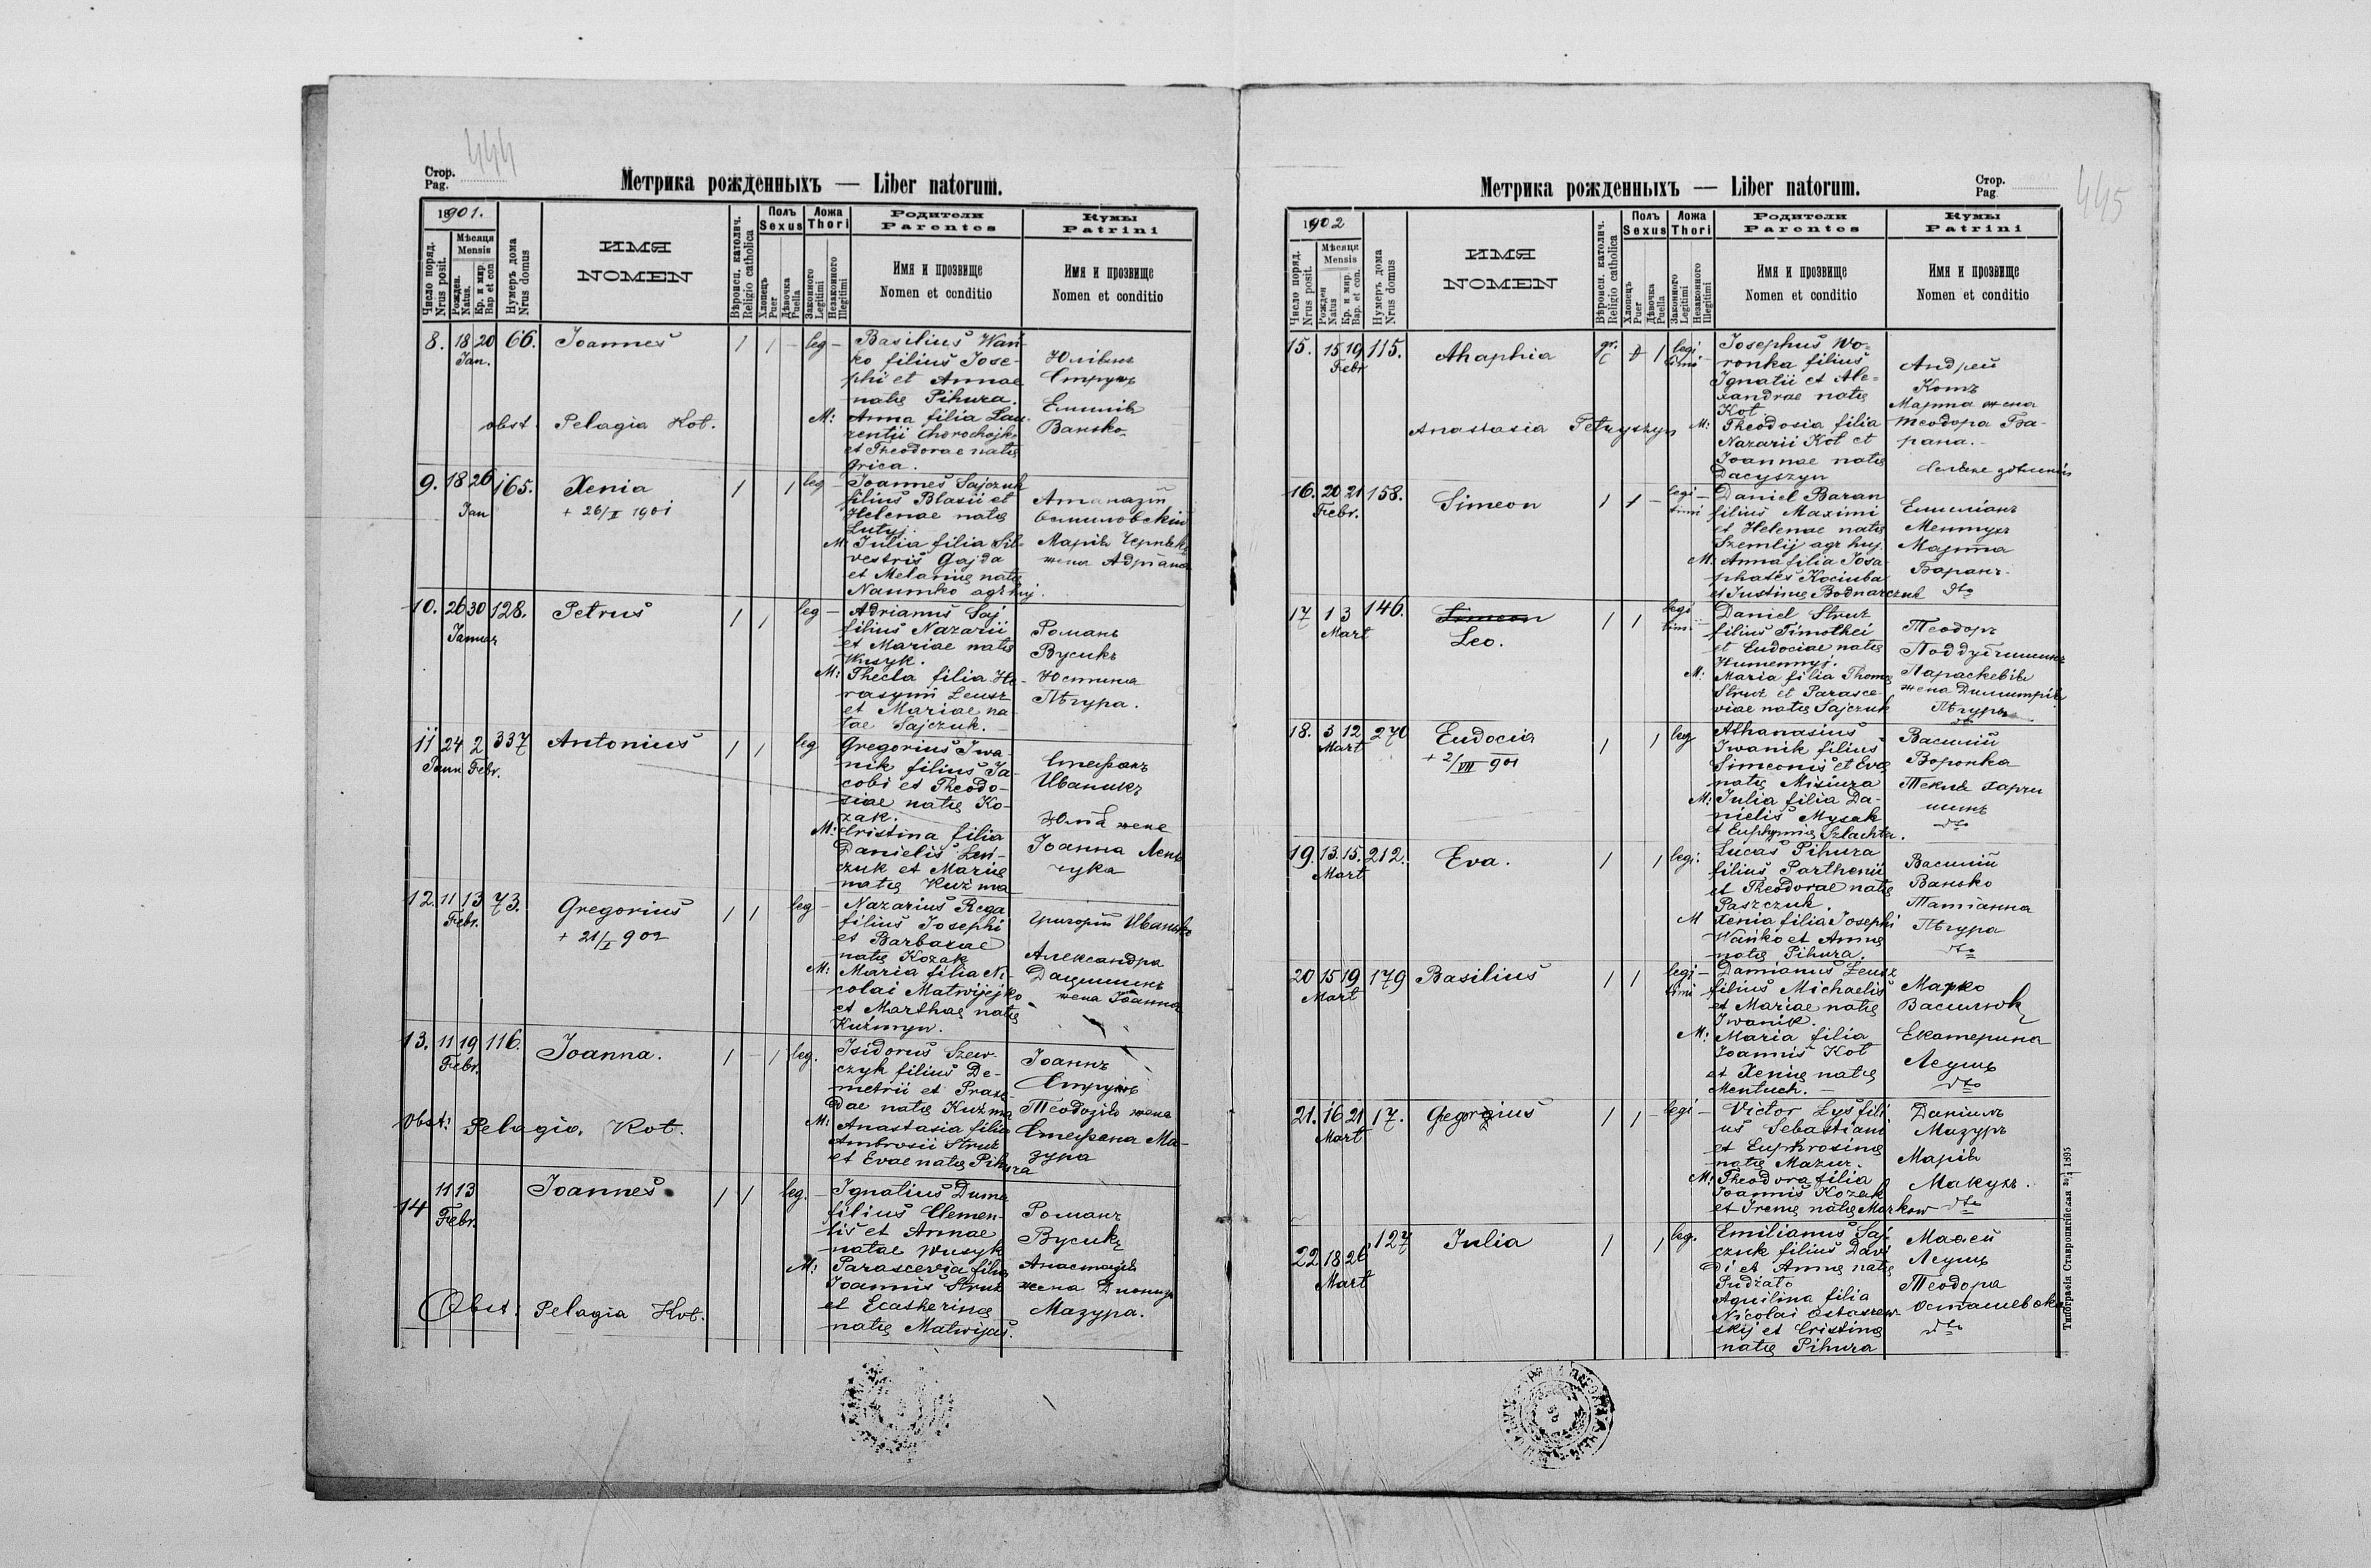 444
Стор.
Pag.
Метрика рожденныхъ — Liber natorum.
18901.
Число поряд.
Nrus posit.
Мѣсяця
Mensis
Рожден.
Natus.
Кр. и мир.
Bap. et con
Нумеръ дома
Nrus domus
ИМЯ
NOMEN
Вѣроисп. католич.
Religio catholica
Полъ
Sexus
Хлопецъ
Puer
Дѣвочка
Puella
Ложа
Thori
Законного
Legitimi
Незаконного
Illegitimi
Родители
Parentes
Имя и прозвище
Nomen et conditio
Кумы
Patrini
Имя и прозвище
Nomen et conditio
8. 18 20 66. Joannes 1 1 – leg –
Jan.
obst. Pelagia Kot.
Basilius Wań-
ko filius Jose-
phi et Annae
natę Pihura.
M: Anna filia Lau-
rentii Chorochojko
et Theodorae natę
Grica.
Юліянъ
Струзъ
Емилія
Ванько
9. 18 26 165. Xenia 1 1 leg –
Jan
+ 26/II 1901
Joannes Sajczuk
filius Blasii et
Helenae natę
Lutyj.
M: Julia filia Sil-
vestris Gajda
et Melanię natę
Naumko agr huj.
Атаназій
Осмиловскій
Марія
жена Адріана
10. 26 30 128. Petrus 1 1 leg –
Januar
Adrianus Saj
filius Nazarii
et Mariae natę
Wusyk.
M: Thecla filia He-
rasymi Leusz
et Mariae na-
tae Sajczuk.
Романъ
Вусикъ
Юстина
Пѣгура.
11 24 2 337 Antonius 1 1 leg
Jann Febr.
Gregorius Iwa-
nik filius Ja-
cobi et Theodo-
siae natę Ko-
zak.
M: Cristina filia
Danielis Leń-
czuk et Marię
natę Kuźma
Стефанъ
Иваникъ
Юлія жена
Іоанна Лень-
чука
12. 11 13 73. Gregorius 1 1 leg –
Febr.
+ 21/I 902
Nazarius Rega
filius Josephi
et Barbarae
natę Kozak
M: Maria filia Ni-
colai Matwijejko
et Marthae natę
Kuźmyn.
Григорій Иванько
Александра
Дацишинъ
жена Іоанна
13. 11 19 116. Joanna. 1 – 1 leg.
Febr.
Obst: Pelagia. Kot.
Isidorus Szew-
czyk filius De-
metrii et Praxe-
dae natę Kuźma
M: Anastasia filia
Ambrosii Struz
et Evae natę Pihura
Іоаннъ
Струзъ
Теодозія жена
Стефана Ма-
зура
14 11 13 Joannes 1 1 leg. –
Febr.
Obst: Pelagia Kot.
Ignatius Duma
filius Clemen-
tis et Annae
natae Wusyk
M: Parascevia filia
Joannis Struz
et Ecatherinę
natę Matwijas.
Романъ
Вусикъ
Анастазія
жена Дионизія
Мазура.
Стор.
Pag.
445
Метрика рожденныхъ — Liber natorum.
1902
Число поряд.
Nrus posit.
Мѣсяця
Mensis
Рожден
Natus
Кр. и мир.
Bap. et con.
Нумеръ дома
Nrus domus
ИМЯ
NOMEN
Вѣроисп. католич.
Religio catholica
Полъ
Sexus
Хлопецъ
Puer
Дѣвочка
Puella
Ложа
Thori
Законного
Legitimi
Незаконного
Illegitimi
Родители
Parentes
Имя и прозвище
Nomen et conditio
Кумы
Patrini
Имя и прозвище
Nomen et conditio
15. 15 19 115. Ahaphia gr. c 1 legi-
Febr timi
Anastasia Petryszyn
Josephus Wo-
ronka filius
Ignatii et Ale-
xandrae natę
Kot.
M: Theodosia filia
Nazarii Kot et
Joannae natę
Dacyszyn
Андрей
Котъ
Марта жена
Теодора Ба-
рана.
16. 20 21 158. Simeon 1 1 – legi-
Febr. timi
Daniel Baran
filius Maximi
et Helenae natę
Szemlij agr huj.
M: Anna filia Josa-
phates Kociuba
et Justinę Bodnarczuk
Емиліанъ
Ментухъ
Марта
Баранъ.
dto
17 1 3 146. Simeon 1 1 legi-
Mart Leo. timi
Daniel Struz
filius Timothei
et Eudociae natę
Humennyj.
M: Maria filia Thomę
Struz et Parasce-
viae natę Sajczuk
Теодоръ
Параскевія
жена Димитрія
Пѣгуры
dto
18. 3 12 270 Eudocia 1 1 leg
Mart
+ 2/VII 901
Athanasius
Iwanik filius
Simeonis et Evę
natę Misiura
M: Julia filia Da-
nielis Mysak
et Euphymię Szlachta.
Василій
Воронка
Текля Харчи-
шинъ
dto
19. 13. 15. 212. Eva. 1 1 legi.
Mart
Lucas Pihura
filius Parthenii
et Theodorae natę
Paszczuk.
M Xenia filia Josephi
Wańko et Annę
natę Pihura.
Василій
Ванько
Татіанна
Пѣгура
dto
20 15 19 179 Basilius 1 1 legi-
Mart timi
Damianus Leusz
filius Michaelis
et Mariae natę
Iwanik.
M: Maria filia
Joannis Kot
et Xenię natę
Mentuch. –
Марко
Василюк
Екатерина
Леушъ
dto
21. 16 21 17. Gregorius 1 1 legi –
Mart
Victor Lys fili-
us Sebastiani
et Euphrosinę
natę Mazur.
M: Theodora filia
Joannis Kozak
et Irenę natę Markow
Даніилъ
Мазуръ
Марія
Макухъ.
dto
22 18 26 127 Julia 1 1 leg.
Mart
Emilianus Saj-
czuk filius Davi-
di et Annę natę
Pudźato
Aquilina filia
Nicolai Ostaszew-
skij et Cristinę
natę Pihura
Матей
Леушъ
Теодора
Осташевска
dto
Типографія Ставропигійская 1895